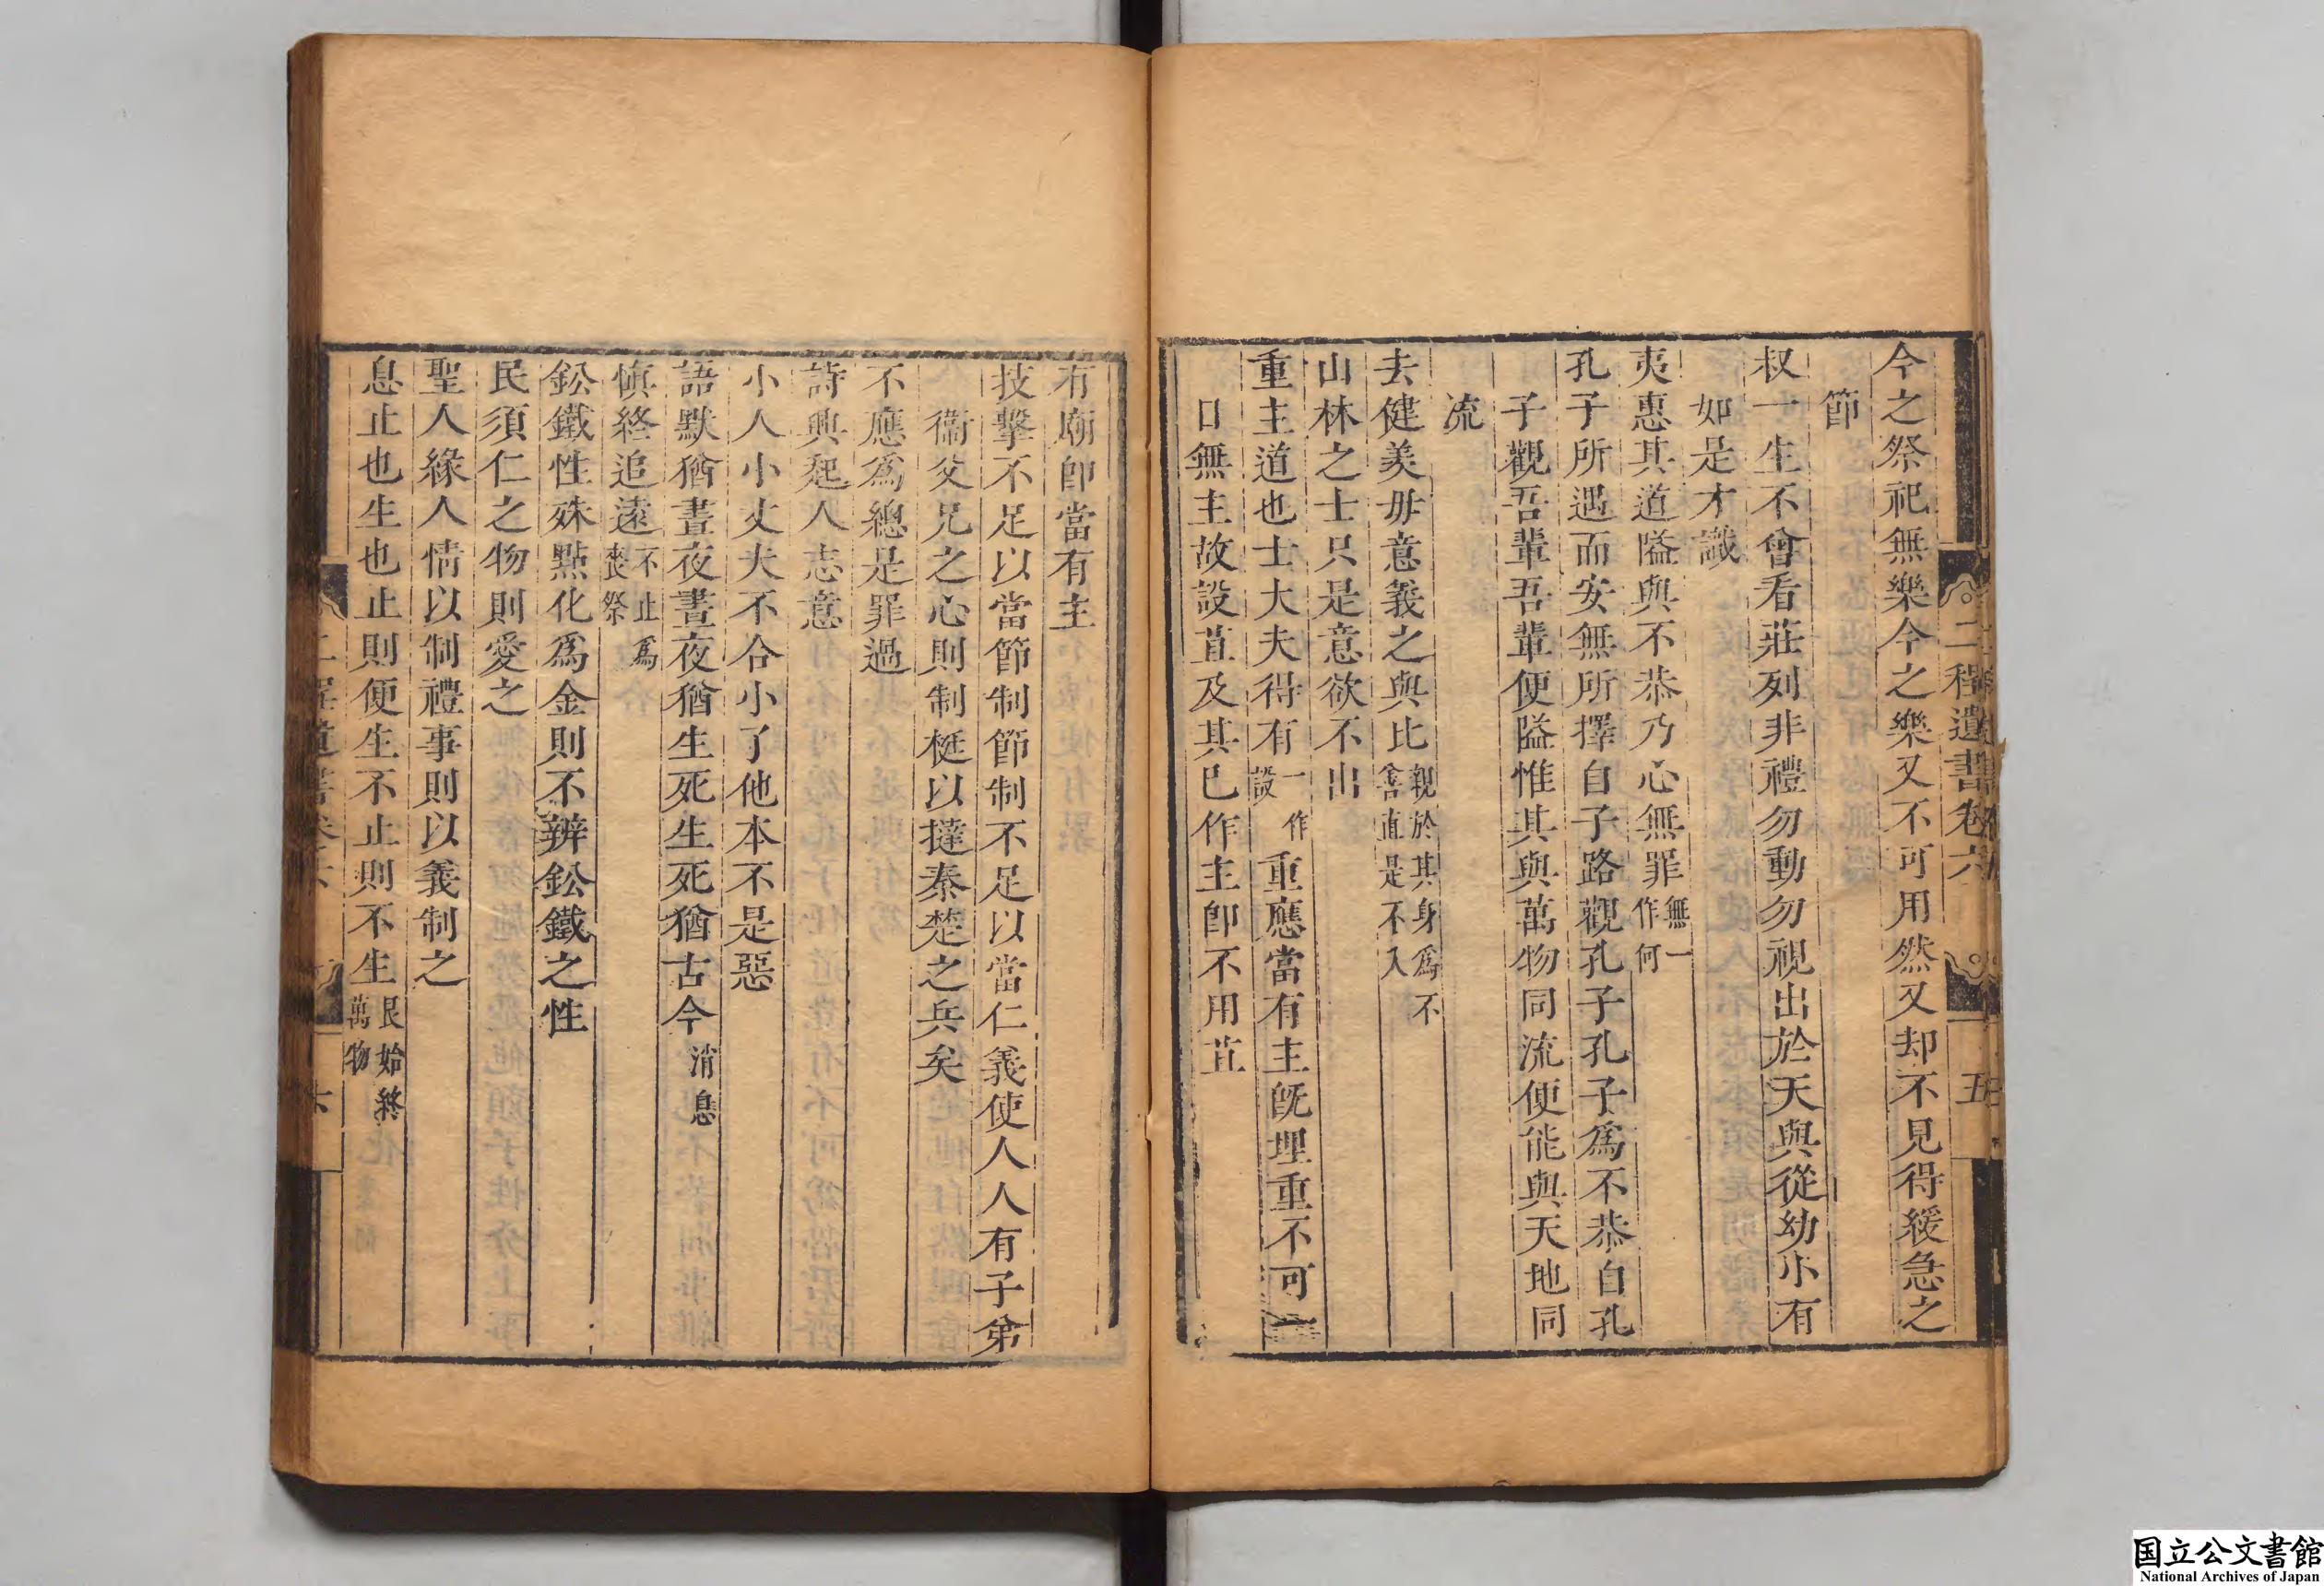 二程遺書卷六
五
今之祭祀無樂今之樂又不可用然又却不見得緩急之
節
叔一生不曾看莊列非禮勿動勿視出於天與從幼小有
如是才識
夷惠其道隘與不恭乃心無罪無一作何
孔子所遇而安無所擇自子路觀孔子孔子為不恭自孔
子觀吾輩吾輩便隘惟其與萬物同流便能與天地同
流
去健羡毋意義之與比親於其身為不善直是不入
山林之士只是意欲不出
重主道也士大夫得有一作設重應當有主既埋重不可一
日無主故設苴及其已作主即不用苴
有廟即當有主
技擊不足以當節制節制不足以當仁義使人人有子弟
衛父兄之心則制梃以撻秦楚之兵矣
不應為總是罪過
詩興起人志意
小人小丈夫不合小了他本不是惡
語默猶晝夜晝夜猶生死生死猶古今消息
慎終追遠不止為喪祭
鈆鐵性殊點化為金則不辨鈆鐵之性
民須仁之物則愛之
聖人緣人情以制禮事則以義制之
息止也生也止則便生不止則不生艮始終萬物
国立公文書館
National Archives of Japan